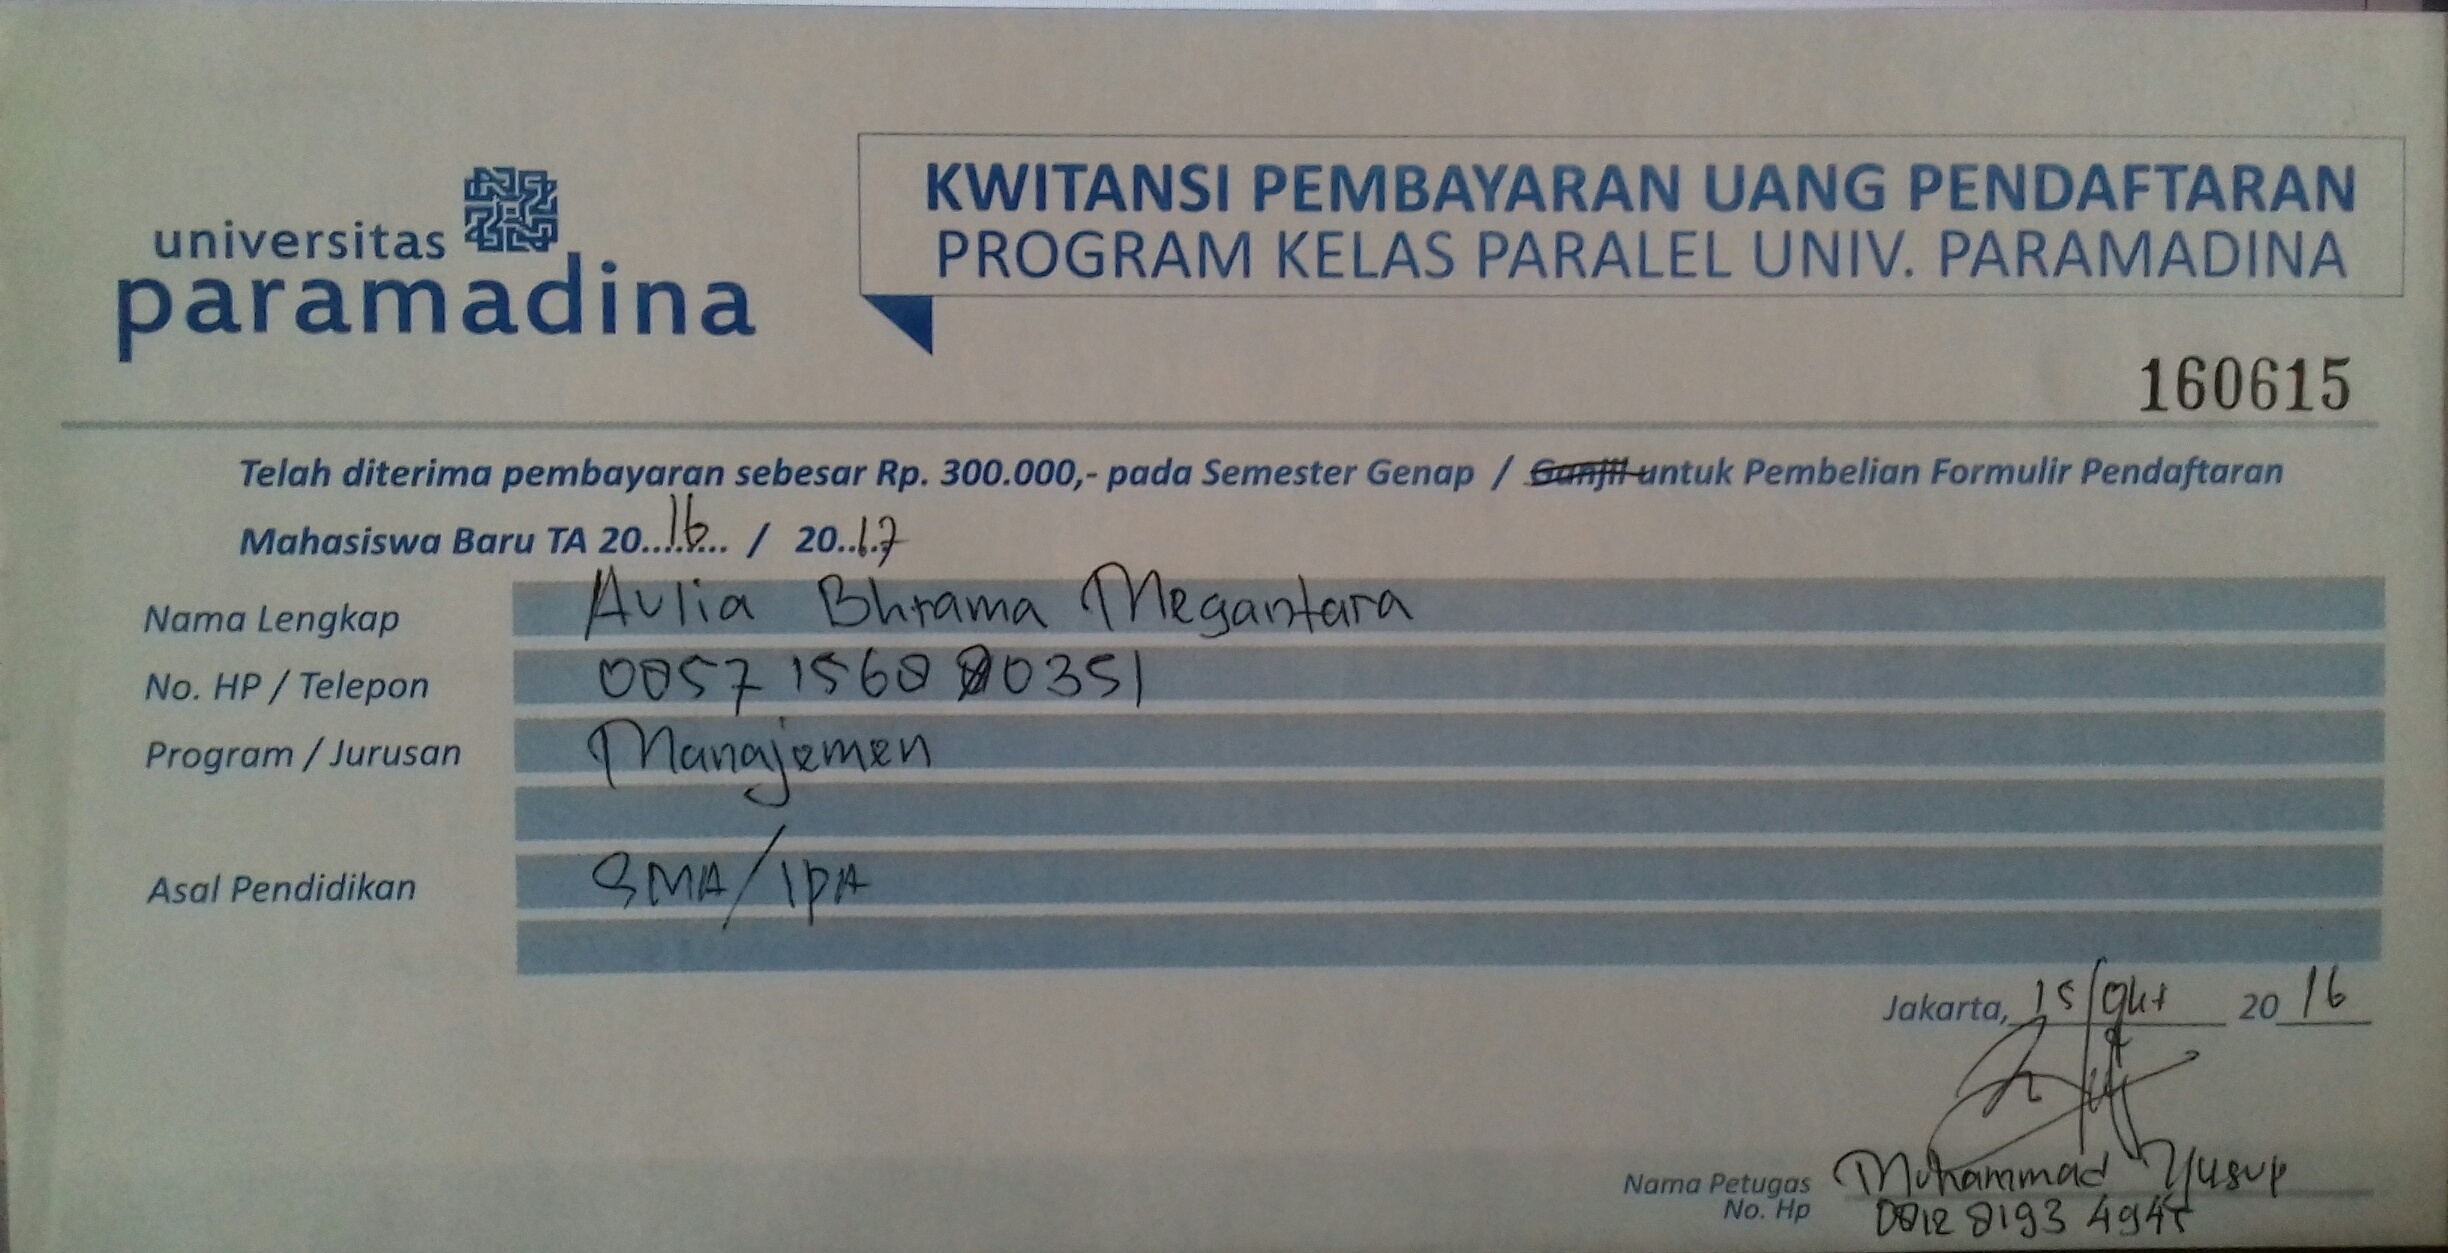 universitas
paramadina
KWITANSI PEMBAYARAN UANG PENDAFTARAN
PROGRAM KELAS PARALEL UNIV. PARAMADINA
160615
Telah diterima pembayaran sebesar Rp. 300.000,- pada Semester Genap / Ganjil untuk Pembelian Formulir Pendaftaran
Mahasiswa Baru TA 20..16.. / 20..17
Nama Lengkap Aulia Bhrama Megantara
No. HP / Telepon
Program / Jurusan Manajemen
Asal Pendidikan SMA/IPA
Jakarta, 15/Okt 2016
Nama Petugas Muhammad Yusup
No. Hp 0812 8193 4945